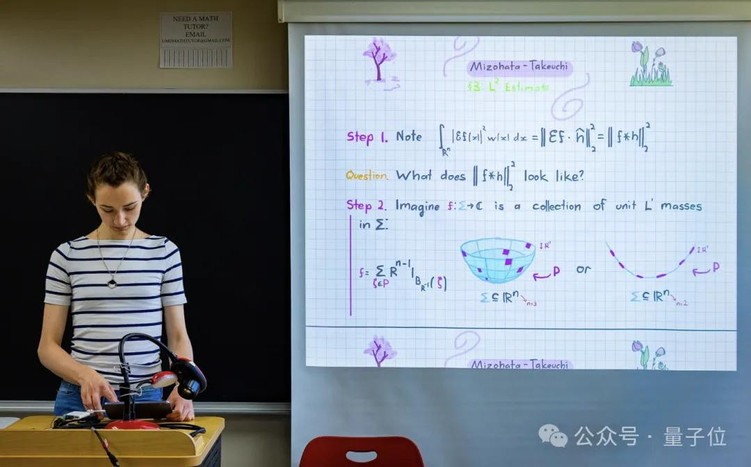 NEED A MATH
TUTOR?
EMAIL
Mizohata-Takeuchi
§3: L² Estimate
Step 1. Note ∫_{ℝⁿ} |Ef(x)|² w(x) dx = ||Ef · ĥ||₂² = ||f*h||₂²
Question. What does ||f*h||₂² look like?
Step 2. Imagine f: Σ → ℂ is a collection of unit L¹ masses
in Σ:
f = Σ_{ξ∈P} R^{n-1} 1_{B_{R^{-1}}(ξ)}
R⁻¹
P
or
R⁻¹
P
Σ ⊆ ℝⁿ n=3
Σ ⊆ ℝⁿ n=2
Mizohata-Takeuchi
公众号 · 量子位